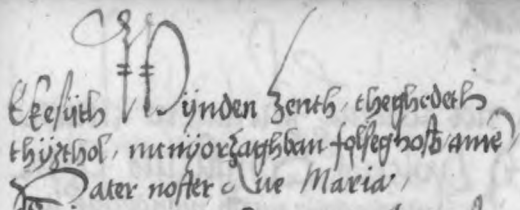 Ekesüth Mÿnden zenth, theghedeth
thÿzthol, mÿnÿorzaghban fölseghösth, amē
Pater noster Aue Maria,